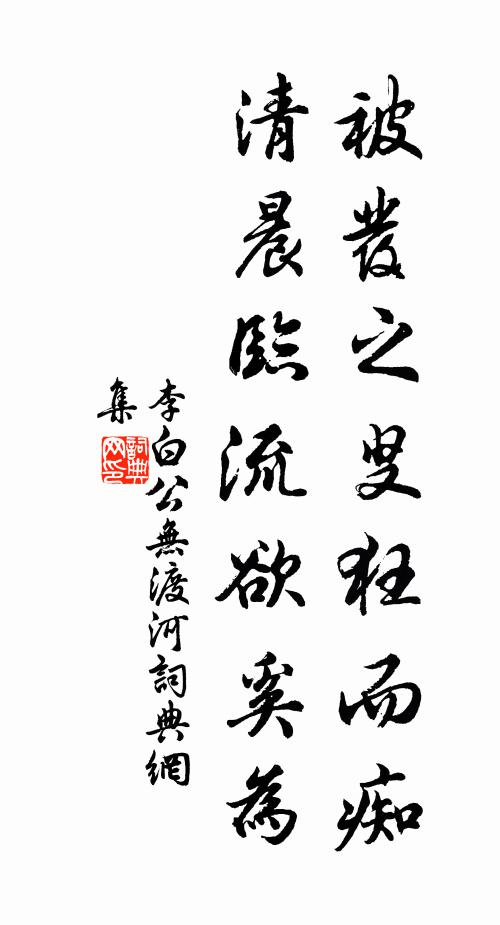 被發之叟狂而痴
清晨臨流欲奚為
李白公無渡河詞典網
集
詞典网印